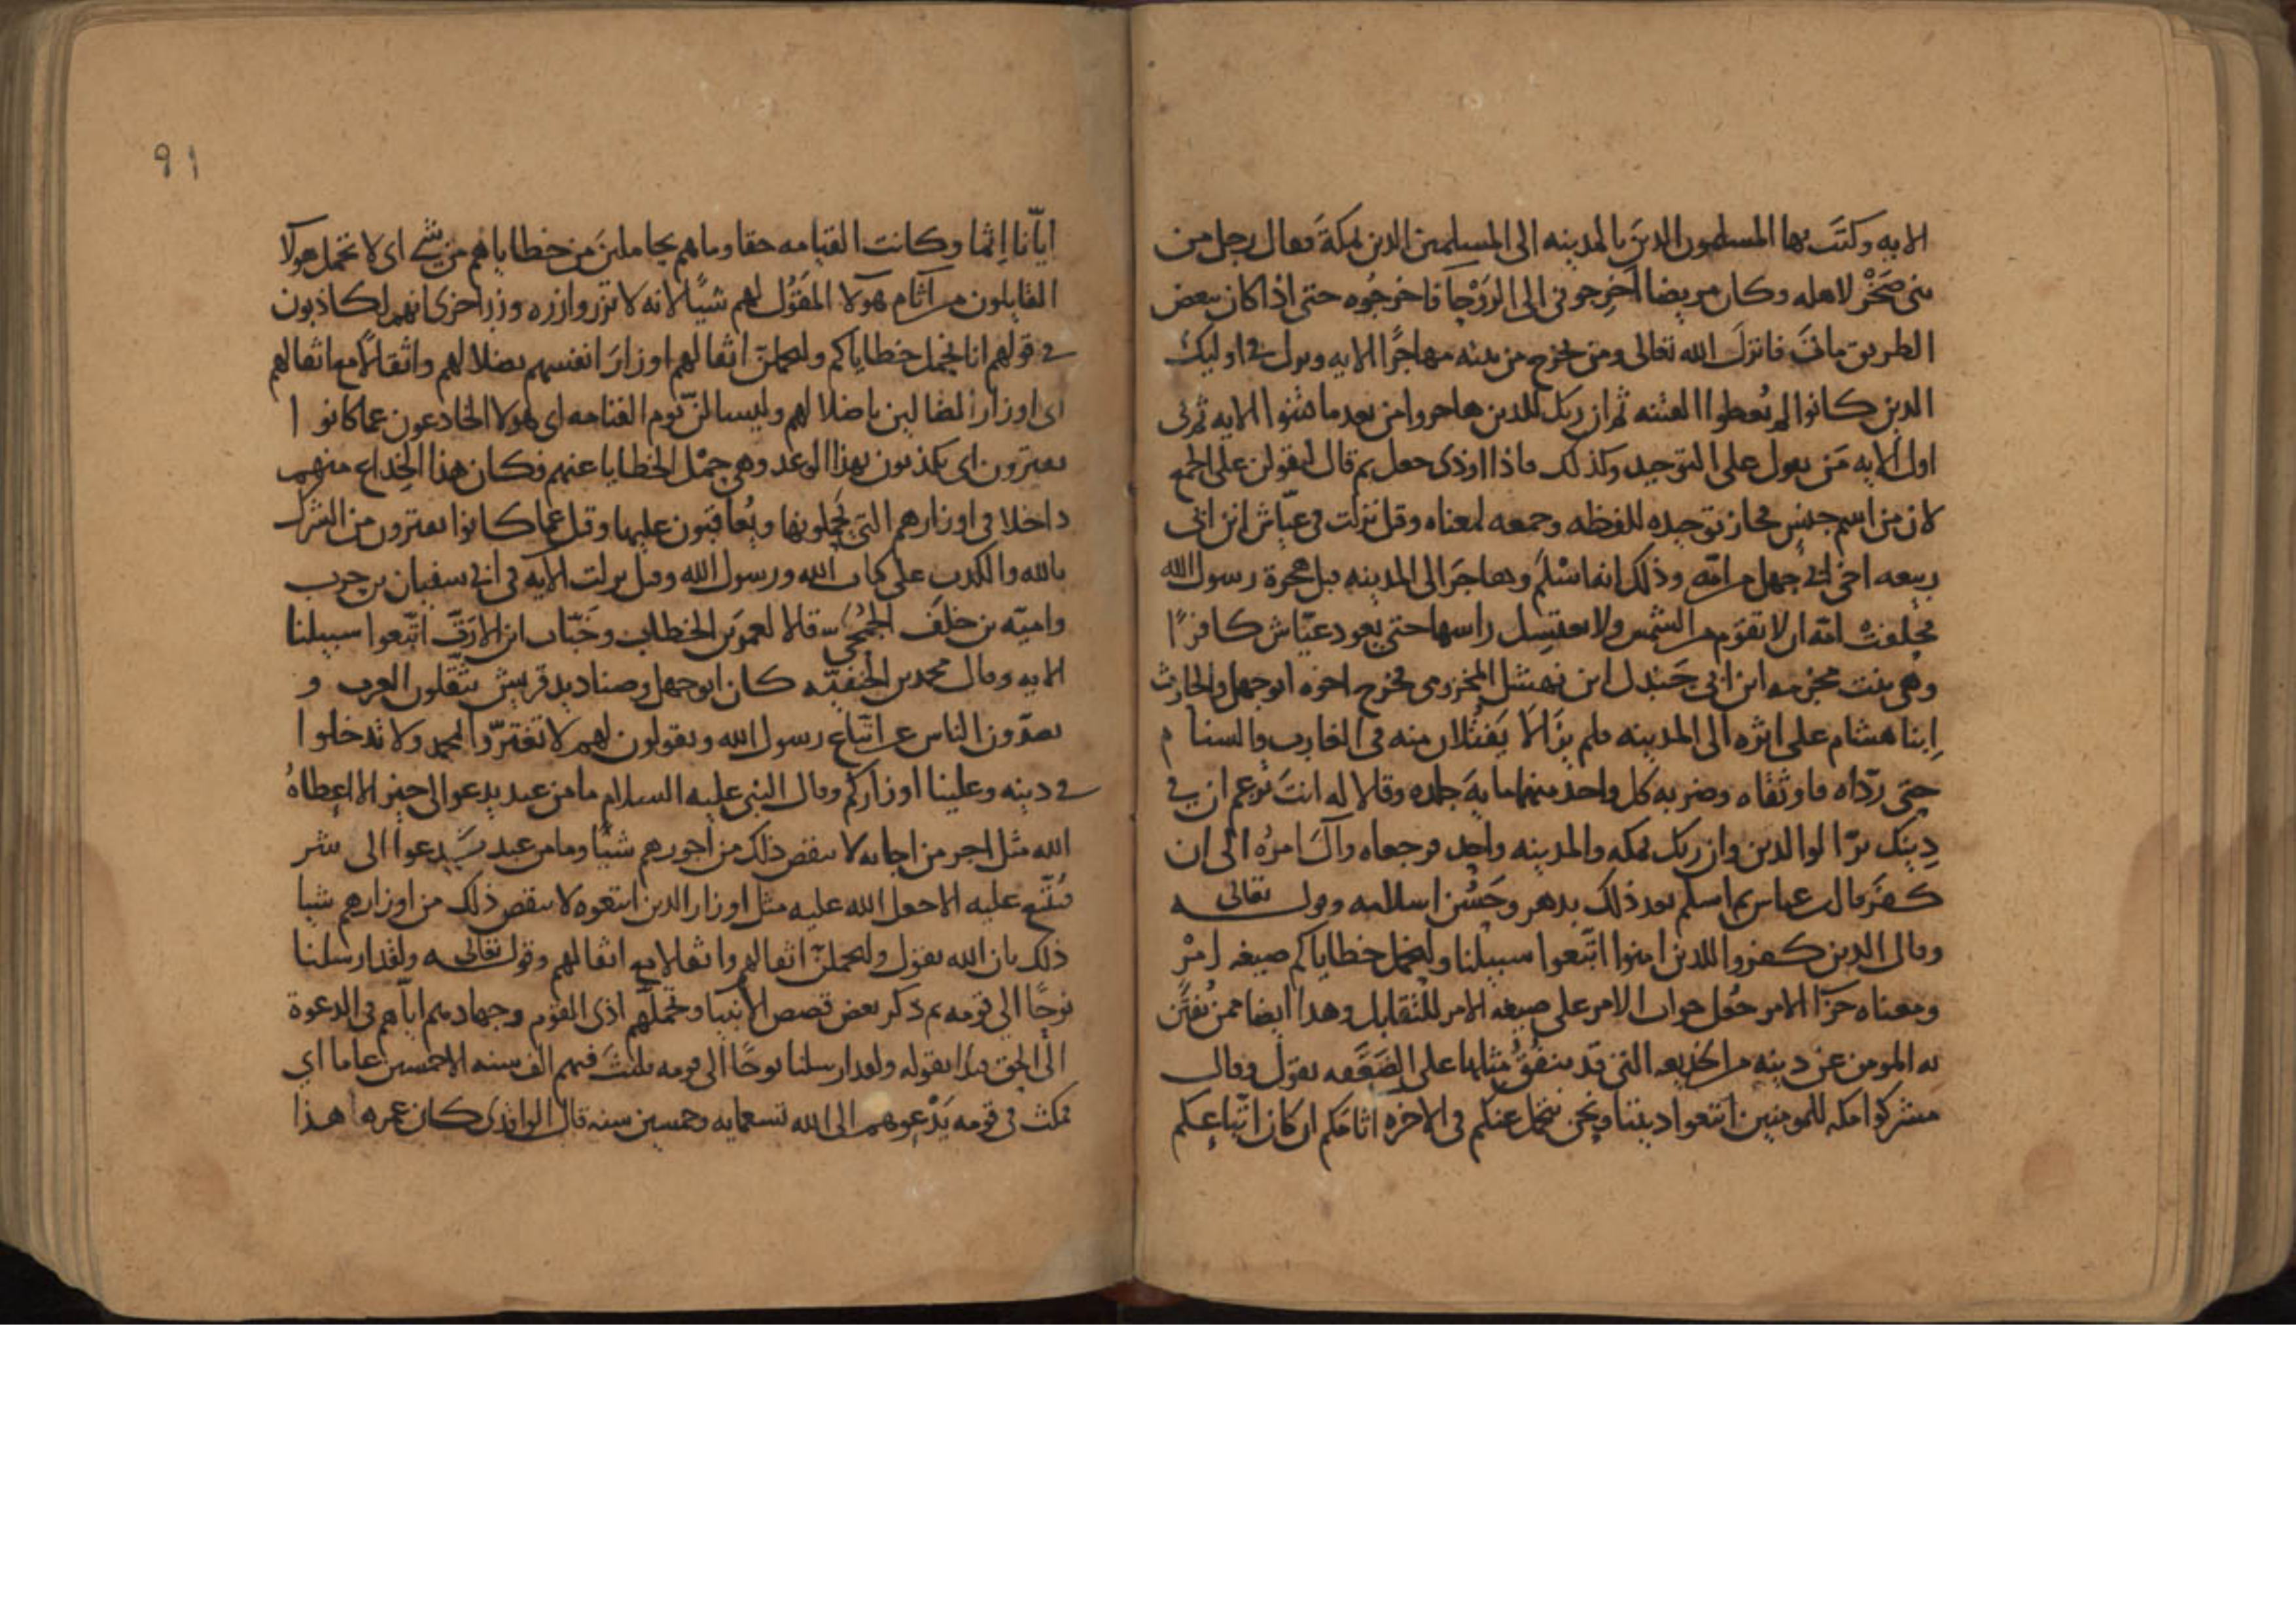 الايه وكتَب بها المسلمون الذينَ بالمدينه الى المسلمين الذين بمكةَ فقال رجل من
بني صَخْر لاهله وكان مريضا اَخرِجوني الى الرَوْحَا فاخرجُوه حتى اذا كان ببعض
الطريق ماتَ فانزلَ الله تعالى ومن يخرج من بيته مهاجرًا الايه ونزل في اوليك
الذين كانوا لم يُعطوا الفتنه ثم ان ربك للذين هاجروا من بعد ما فتنوا الايه ثم في
اول الايه مَن يقول على التوحيد وكذلك فاذا اوذي جعل ثم قال ليقولن على الجمع
لان من اسم جنسٍ فجاز توحيده للفظه وجمعه لمعناه وقيل نزلت في عيّاش ابن ابي
ربيعه اخي ابي جهل من امّه وذلك انه اسْلم وهاجرَ الى المدينه قبل هجرة رسول الله
فحلفت امّه ان لا تقوم من الشمس ولا تغتسِل راسها حتى يعود عيّاش كافرًا
وهي بنت مخرمه ابن ابي جَندل ابن نهشل المخزومي فخرج اخوه ابو جهل والحارث
اِبنا هشام على اثره الى المدينه فلم يزَالا يَفتلان منه في الغارب والسنام
حتى ردّاه فاوثقاه وضربه كل واحد منهما مايهَ جلده وقالا له انتَ تزعم ان في
دِينك برّ الوالدين وان ربك بمكه والمدينه واحد فرجعاه وآلَ امرهُ الى ان
كفرَ قال عباس ثم اسلم بعد ذلك بدهر وحَسُن اسلامه وقوله تعالى
وقال الذين كفروا للذين امنوا اتّبعوا سبيلنا ولنحمل خطاياكم صيغه امْر
ومعناه جزآ الامر جُعل جواب الامر على صيغه الامر للتقابل وهذا ايضا ممن يُفتَن
به المومن عن دينه من الخديعه التي قد ينفُقُ مثلها على الضَعَفه يقول وقال
مشركوا مكه للمومنين اتبعوا ديننا ونحن نتحمل عنكم في الاخره اثامكم ان كان اتّباعكم
91
ايّانا اِثما وكانت القيامه حقا وما هم بحاملينَ من خطاياهم من شي اى لا تحمل هولا
القايلون من آثام هولا المقوُل لهم شيًا لانه لا تزر وازره وزر اخرى انهم لكاذبون
في قولهم انا نحمل خطاياكم وليحملنّ اثقالهم اوزارَ انفسهم بضلالهم واثقالًا مع اثقالهم
اى اوزار الضالين باضلالهم وليسالنّ يوم القيامه اى هولا الخادعون عما كانوا
يفترون اى يكذبون بهذا الوعد وهي حمْل الخطايا عنهم فكان هذا الخِداع منهم
داخلا في اوزارهم التي يَحملونها ويُعاقبون عليها وقيل عما كانوا يفترون من الشرك
بالله والكذب على كتاب الله ورسول الله وقيل نزلت الايه في ابي سفيان بن حرب
واميّه بن خلَف الجُمحي قالا لعمر بن الخطاب وخَبّاب ابن الارَتّ اتّبعوا سبيلنا
الايه وقال محمد بن الحنفيّه كان ابو جهل وصناديد قريش يتلقون العرب و
يصدّون الناس عن اتّباع رسول الله ويقولون لهم لا تغترّوا بمحمد ولا تدخلوا
في دينه وعلينا اوزاركم وقال النبي عليه السلام ما من عبد يدعوا الى خير الا اعطاهُ
الله مثل اجر من اجابه لا ينقص ذلك من اجورهم شيًا وما من عبد يدعوا الى شر
فيُتّبع عليه الا جعل الله عليه مثل اوزار الذين اتبعوه لا ينقص ذلك من اوزارهم شيا
ذلك بان الله يقول وليحملنّ اثقالهم واثقالا مع اثقالهم وقوله تعالى ولقد ارسلنا
نوحًا الى قومه ثم ذكر بعض قصص الانبيا وتحمّلهم اذى القوم وجهادهم اياهم في الدعوة
الى الحق فبدا بقوله ولقد ارسلنا نوحًا الى قومه فلبثَ فيهم الف سنه الا خمسين عاما اي
فمكث في قومه يَدْعوهم الى الله تسعمايه وخمسين سنه قال الواقدى كان عمره هذا